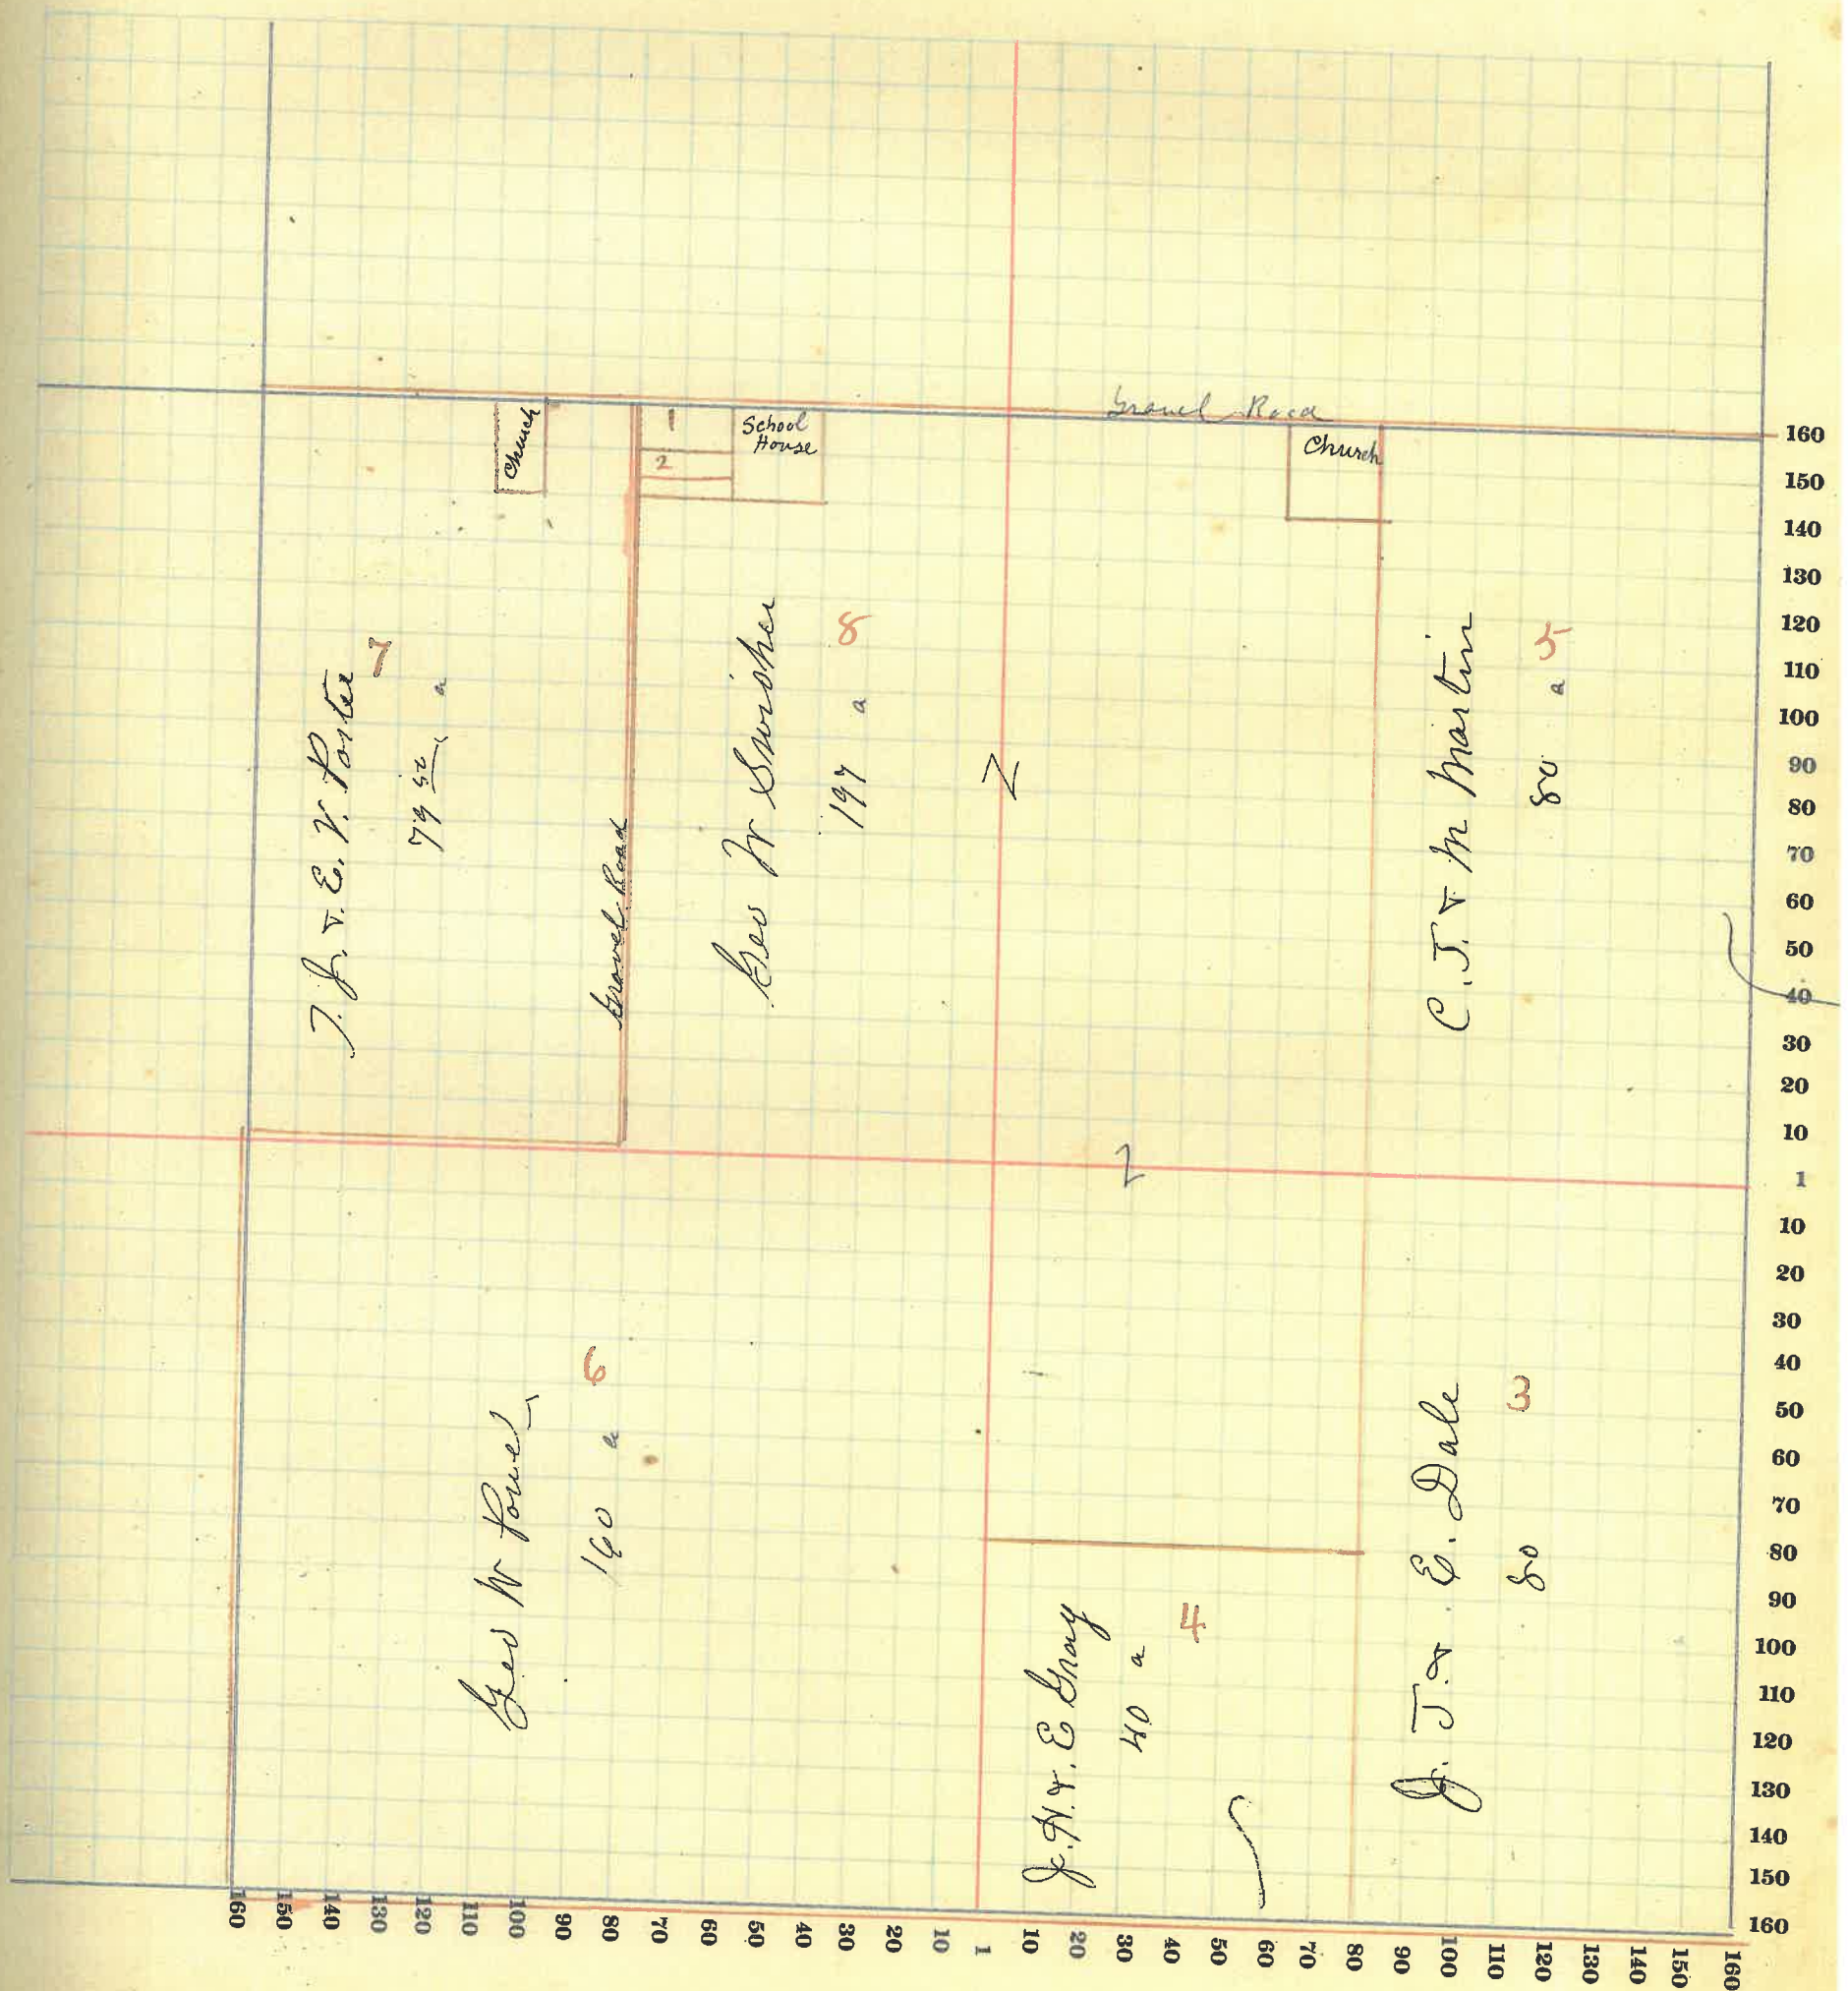 Gravel Road
Church
1
2
School House
Church
T. J. & E. V. Porter
7
79 50 a
Gravel Road
Geo W Swisher
8
197 a
C. J. & M Martin
5
80 a
Geo W
6
160 a
J. H. & E Gray
40 a
4
J. T. & E. Dale
3
80
160
150
140
130
120
110
100
90
80
70
60
50
40
30
20
10
1
10
20
30
40
50
60
70
80
90
100
110
120
130
140
150
160
160 150 140 130 120 110 100 90 80 70 60 50 40 30 20 10 1 10 20 30 40 50 60 70 80 90 100 110 120 130 140 150 160